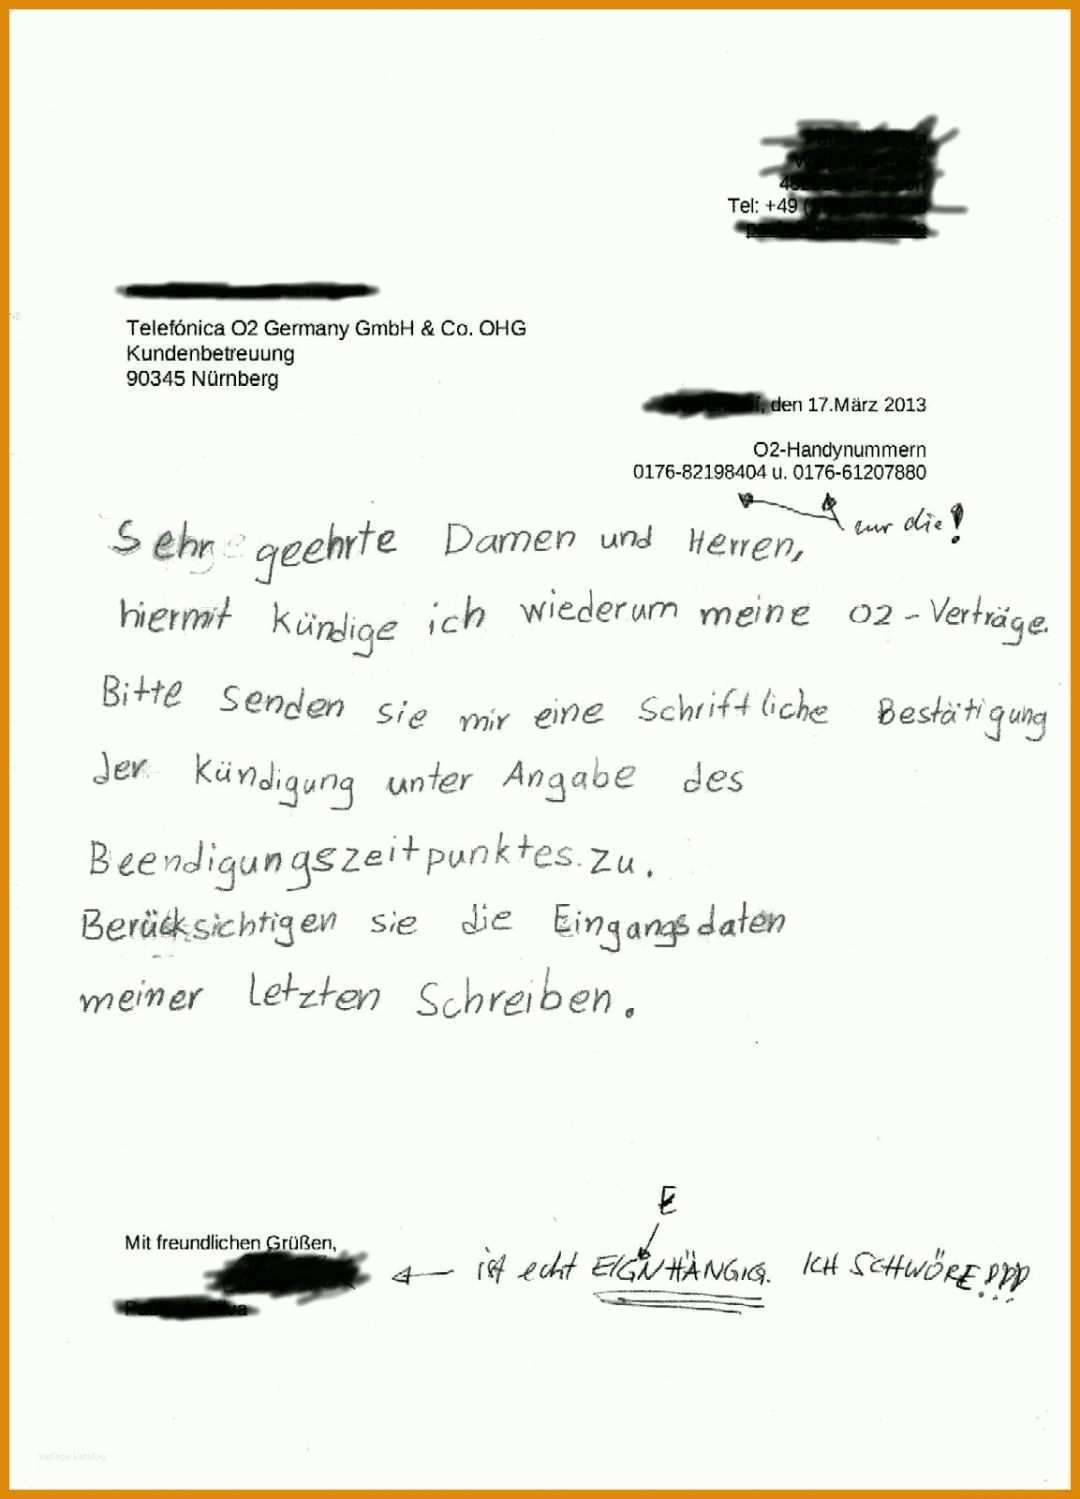 Tel: +49 (
Telefónica O2 Germany GmbH & Co. OHG
Kundenbetreuung
90345 Nürnberg
, den 17.März 2013
O2-Handynummern
0176-82198404 u. 0176-61207880
nur die!
Sehr geehrte Damen und Herren,
hiermit kündige ich wiederum meine O2-Verträge.
Bitte senden sie mir eine Schriftliche Bestätigung
der Kündigung unter Angabe des
Beendigungszeitpunktes.zu.
Berücksichtigen sie die Eingangsdaten
meiner letzten Schreiben.
Mit freundlichen Grüßen,
E
ist echt EIGNHÄNGIG. ICH SCHWÖRE!!!